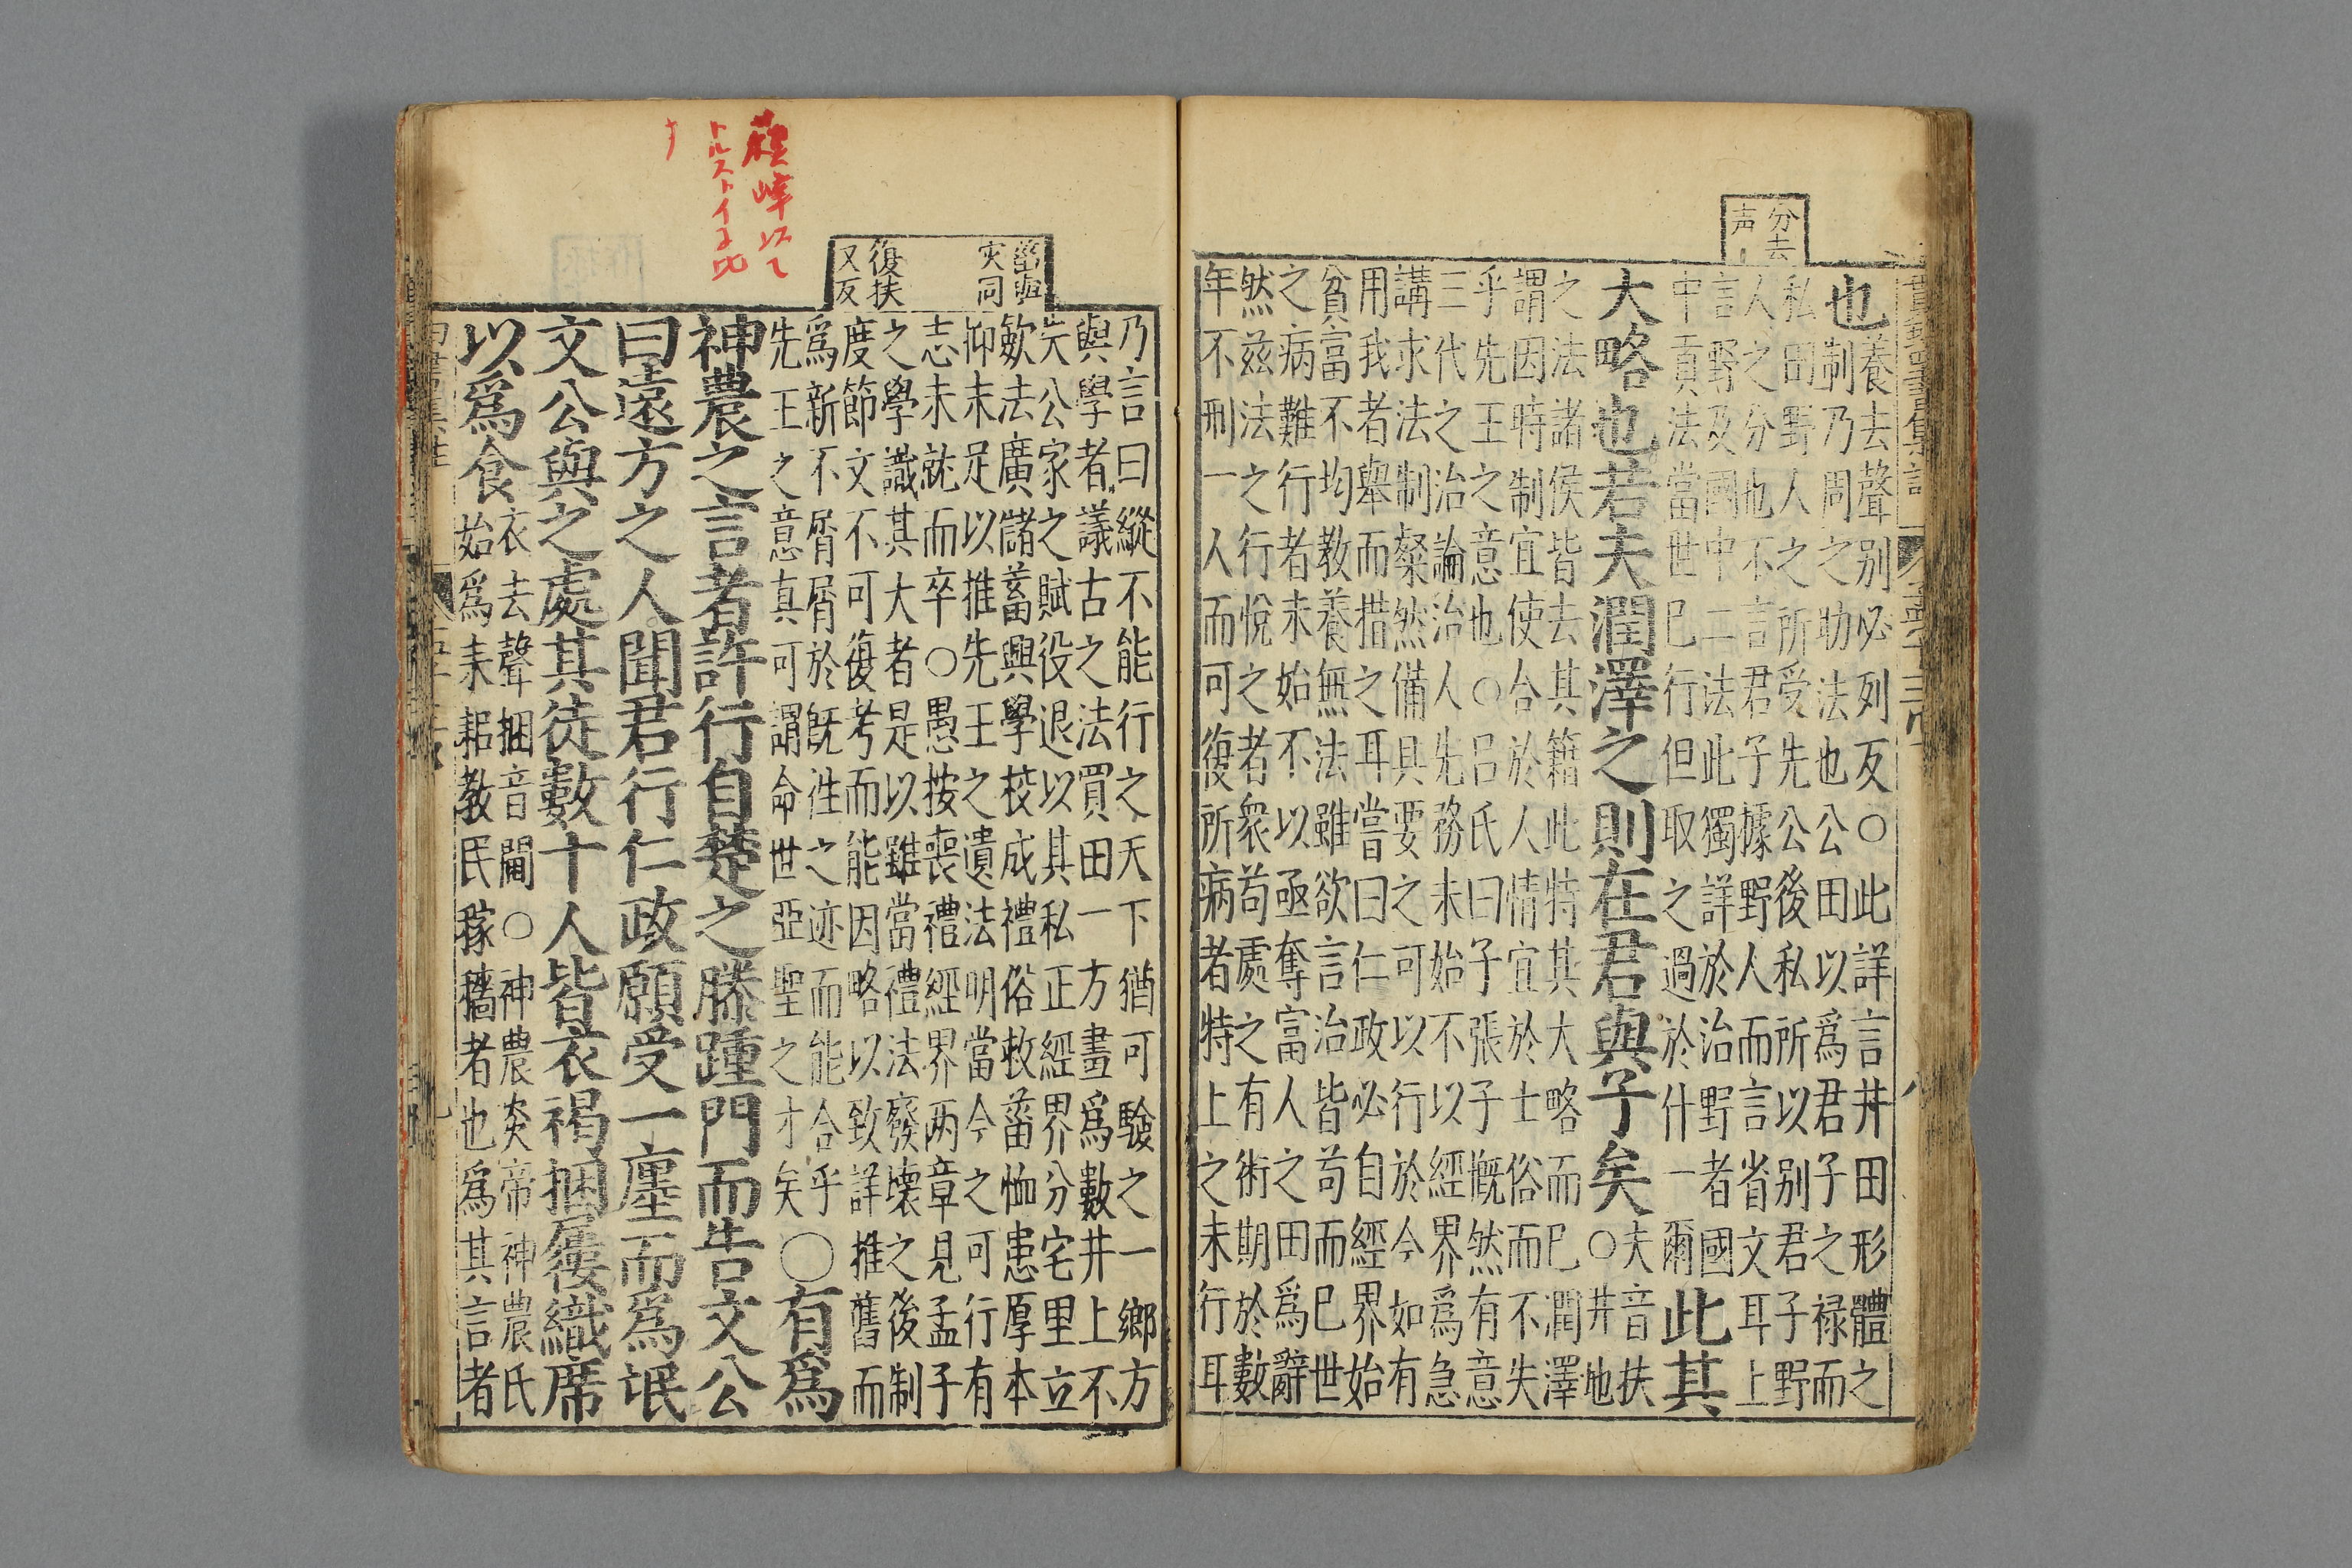 分去
声
也養去聲别必列反○此詳言井田形體之
制乃周之助法也公田以爲君子之禄而
私田野人之所受先公後私所以别君子野
人之分也不言君子據野人而言省文耳上
言野及國中二法此獨詳於治野者國
中貢法當世已行但取之過於什一爾
此其
大略也若夫潤澤之則在君與子矣
夫音扶
○井地
之法諸侯皆去其籍此特其大略而已潤澤
謂因時制宜使合於人情宜於士俗而不失
乎先王之意也○吕氏曰子張子慨然有意
三代之治論治人先務未始不以經界爲急
講求法制粲然備具要之可以行於今如有
用我者舉而措之耳嘗曰仁政必自經界始
貧富不均教養無法雖欲言治皆苟而已世
之病難行者未始不以亟奪富人之田爲辭
然兹法之行悅之者衆苟處之有術期於數
年不刑一人而可復所病者特上之未行耳
菑與
灾同
復扶
又反
トルストイ
乃言曰縱不能行之天下猶可驗之一鄉方
與學者議古之法買田一方畫爲數井上不
失公家之賦役退以其私正經界分宅里立
歛法廣儲蓄興學校成禮俗救菑恤患厚本
抑末足以推先王之遺法明當今之可行有
志未就而卒○愚按喪禮經界两章見孟子
之學識其大者是以雖當禮法廢壊之後制
度節文不可復考而能因略以致詳推舊而
爲新不屑屑於旣徃之迹而能合乎
先王之意真可謂命世亞聖之才矣
○有爲
神農之言者許行自楚之滕踵門而告文公
曰遠方之人聞君行仁政願受一廛而爲氓
文公與之處其徒數十人皆衣褐捆屨織席
以爲食
衣去聲捆音閫○神農炎帝神農氏
始爲耒耜教民稼穡者也爲其言者